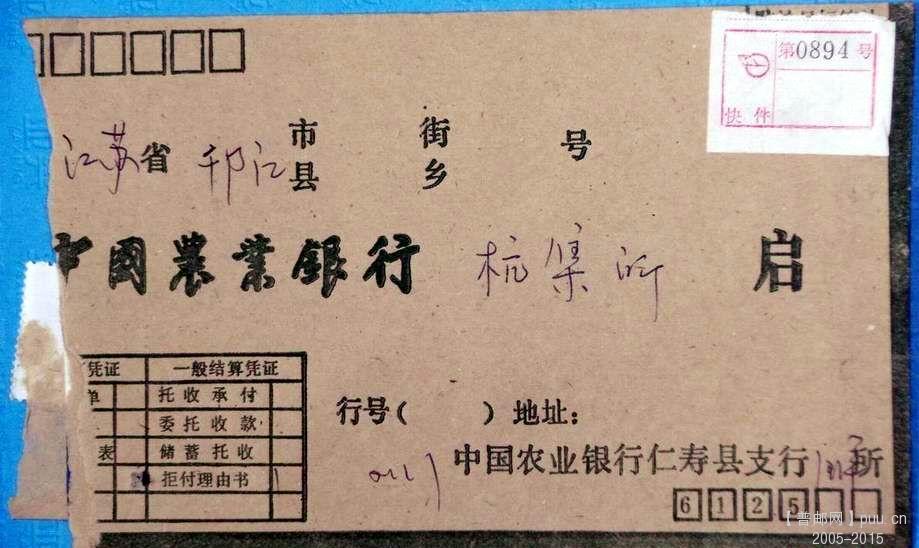 第0894号
快件
江苏省 邗江 市 街 号
县 乡
中國農業銀行 杭集所 启
凭证 一般结算凭证
单 托收承付
委托收款
表 储蓄托收
拒付理由书
行号( ) 地址:
中国农业银行仁寿县支行 所
6125
【普邮网】puu cn
2005-2015